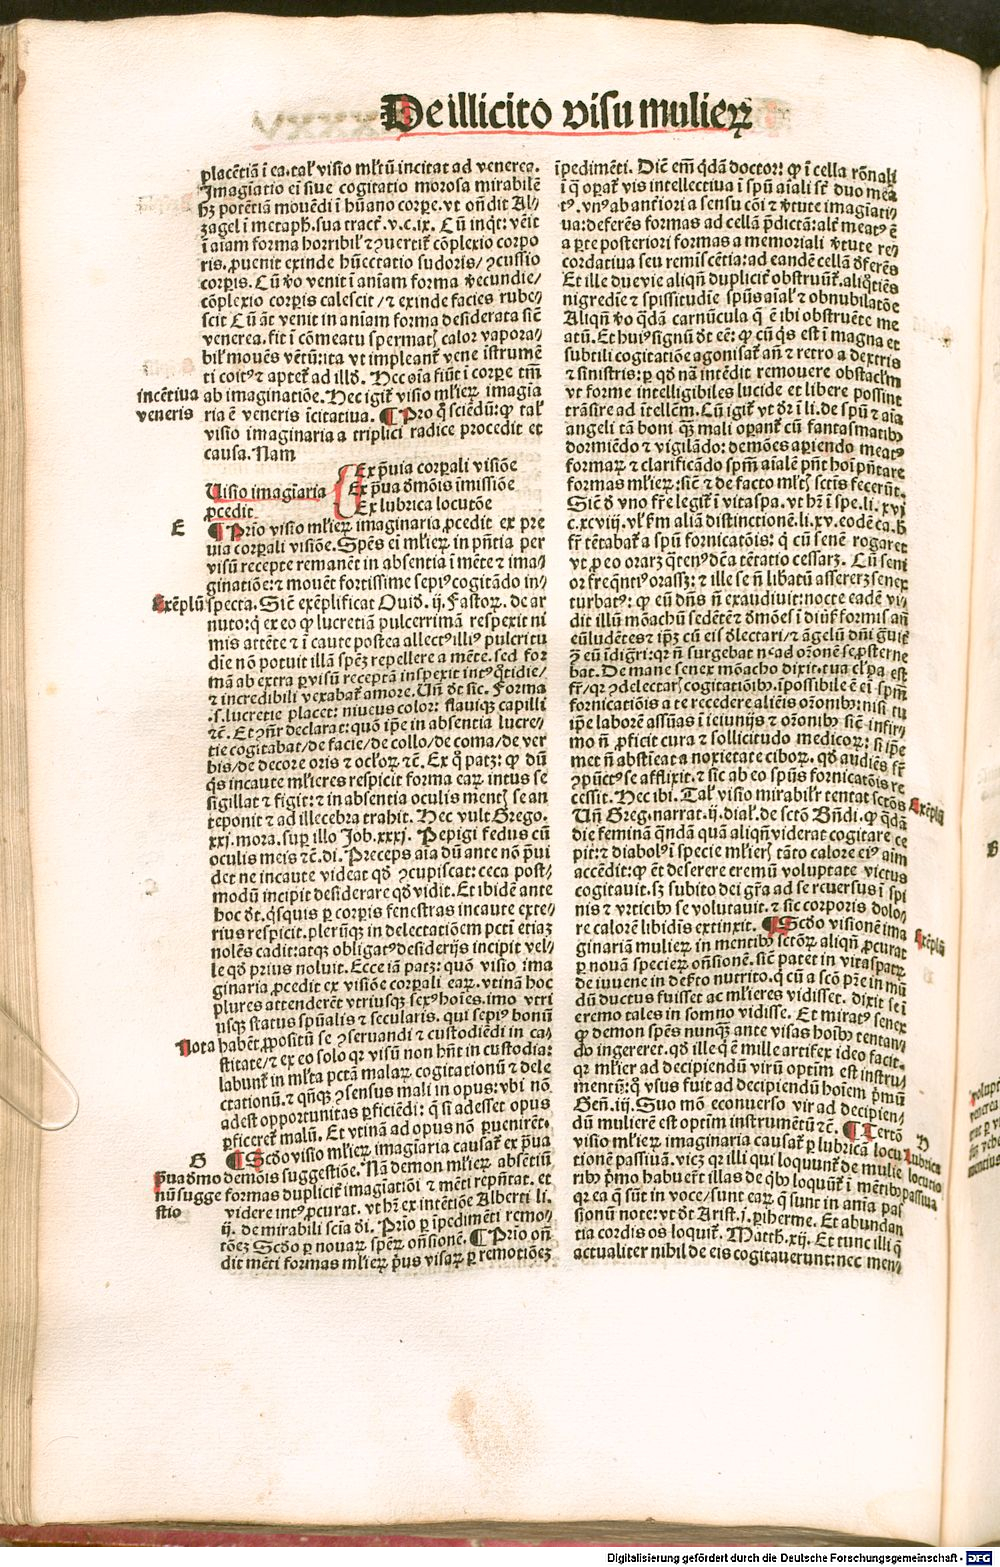 De illicito visu mulieꝝ
placẽtiã ĩ ea. tal' visio ml'tũ incitat ad venerea.
Imagĩatio eĩ siue cogitatio morosa mirabilẽ
hꝫ potẽtiã mouẽdi ĩ hũano corpe. vt oñdit Al⸗
zagel ĩ metaph. sua tract. v. c. ix. Cũ inqt: veĩt
ĩ aĩam forma horribil' ⁊ ꝯuertit̃ cõplexio corpo
ris. ꝓuenit exinde hũectatio sudoris / ⁊cussio
corpis. Cũ v̊o venit ĩ aniam forma v̊ecundie /
cõplexio corpis calescit / ⁊ exinde facies rube⸗
scit Cũ aũt venit in aniam forma desiderata siẽ
venerea. fit ĩ cõmeatu spermatꝭ calor vapora⸗
bil' mouẽs vẽtũ: ita vt impleant̃ vene istrumẽ
ti coit⁹ ⁊ aptet̃ ad illd̃. Hec oĩa fiũt ĩ corpe tm̃
ab imaginatiõe. Hec igit̃ visio ml'ieꝝ imagĩa
ria ẽ veneris ĩcitatiua. ¶ Pro q̊ sciẽdũ: ꝙ tal'
visio imaginaria a triplici radice procedit et
causa. Nam
incẽtiua
veneris
Uisio imagĩaria
ꝓcedit
Ex p̃uia corpali visiõe
Ex p̃ua dmõis ĩmissiõe
Ex lubrica locutõe
E
¶ Prĩo visio ml'ieꝝ imaginaria ꝓcedit ex pre
uia corpali visiõe. Spẽs eĩ ml'ieꝝ in pñtia per
visũ recepte remanẽt in absentia ĩ mẽte ⁊ ima⸗
ginatiõe: ⁊ mouẽt fortissime sepi⁹ cogitãdo in⸗
Exẽplũ
specta. Siẽ exẽplificat Ouid̃. ij. Fastoꝝ. de ar
nuto: q̊ ex eo ꝙ lucretiã pulcerrimã respexit ni
mis attẽte ⁊ ĩ caute postea allect⁹ illi⁹ pulcritu
dĩe nõ potuit illã spẽꝫ repellere a mẽte. sed for
mã ab extra p visũ receptã inspexit int⁹ q̊tidie /
⁊ incredibili vexabat̃ amore. Uñ d̃t sic. Forma
.s. lucretie placet: niueus color: flauiqꝫ capilli
⁊c̃. Et ꝯñr declarat: quõ ip̃e in absentia lucre⸗
tie cogitabat / de facie / de collo / de coma / de ver
bis / de decore oris ⁊ ocl'oꝝ ⁊c̃. Ex q̊ patꝫ: ꝙ dũ
q̊s incaute ml'ieres respicit forma eaꝝ intus se
sigillat ⁊ figit: ⁊ in absentia oculis mentꝭ se an
teponit ⁊ ad illecebra trahit. Hec vult Grego.
xxj. mora. sup illo Job. xxxj. Pepigi fedus cũ
oculis meis ⁊c̃. di. Preceps aĩa dũ ante nõ p̃ui
det ne incaute videat qd̃ ꝯcupiscat: ceca post⸗
modũ incipit desiderare qd̃ vidit. Et ibidẽ ante
hoc d̃t. q̊squis p corpis fenestras incaute exte⸗
rius respicit. pleriq̃ꝫ in delectatiõem pctĩ etiaꝫ
nolẽs cadit: atqꝫ obligat⁹ desiderijs incipit vel⸗
le qd̃ prius noluit. Ecce iã patꝫ: quõ visio ima
ginaria ꝓcedit ex visiõe corpali eaꝝ. vtinã hoc
plures attenderẽt vtriusqꝫ sex⁹ hoĩes. imo vtri
usqꝫ status spũalis ⁊ secularis. qui sepi⁹ bonũ
Nota
habẽt ꝓpositũ se ꝯseruandi ⁊ custodiẽdi in ca⸗
stitate / ⁊ ex eo solo qꝛ visũ non hñt in custodia:
labunt̃ in ml'ta pctã malaꝝ cogitationũ ⁊ dele
ctationũ. ⁊ qñqꝫ ꝯsensus mali in opus: vbi nõ
adest opportunitas pficiẽdi: q̊ si adesset opus
pficeret̃ malũ. Et vtinã ad opus nõ puenirẽt.
G
p̃ua dmo
nũ sugge
stio
¶ Scd̃o visio ml'ieꝝ imagĩaria causat̃ ex p̃ua
demõis suggestiõe. Nã demon ml'ieꝝ absẽtiũ
formas duplicit̃ imagĩatiõi ⁊ mẽti rep̃ñtat. et
videre int⁹ ꝓcurat. vt hr̃ ex intẽtiõe Alberti li.
ij. de mirabili scĩa dĩ. Prĩo p ĩpedimẽti remo⸗
tõeꝫ Scd̃o p nouaꝝ speꝝ oñsionẽ. ¶ Prĩo oñ
dit mẽti formas ml'ieꝝ p̃us visaꝝ p remotiõeꝫ
ĩpedimẽti. Diẽ em̃ q̃dã doctor: ꝙ ĩ cella rõnali
ĩ q̃ opat̃ vis intellectiua ĩ spũ aĩali sr̃t duo mea
t⁹. vn⁹ ab anteriori a sensu cõi ⁊ v̊tute imagĩati⸗
ua: deferẽs formas ad cellã p̃dictã: alt̃ meat⁹ ẽ
a pte posteriori formas a memoriali v̊tute re⸗
cordatiua seu remiscẽtia: ad eandẽ cellã d̃ferẽs
Et ille due vie aliqñ duplicit̃ obstruũt̃. aliq̊tiẽs
nigredĩe ⁊ spissitudĩe spũs aĩal' ⁊ obnubilatõe
Aliqñ v̊o q̃dã carnũcula q̃ ẽ ibi obstruẽte me
atũ. Et hui⁹ signũ d̃t eẽ: ꝙ cũ q̊s est ĩ magna et
subtili cogitatiõe agonisat̃ añ ⁊ retro a dextris
⁊ sinistris: p qd̃ nã intẽdit remouere obstacl'm
vt forme intelligibiles lucide et libere possint
trãsire ad itellẽm. Cũ igit̃ vt dr̃ ĩ li. de spũ ⁊ aĩa
angeli tã boni qꝫ mali opant̃ cũ fantasmatibꝫ
dormiẽdo ⁊ vigilãdo: demões apiendo meat⁹
formaꝝ ⁊ clarificãdo spm̃ aĩalẽ pñt hoĩ p̃ñtare
formas ml'ieꝝ: siẽ ⁊ de facto ml'tꝭ sctĩs fecerũt.
Siẽ d̃ vno fr̃e legit̃ ĩ vitaspa. vt hr̃ ĩ spe. li. xvj
c. xcviij. vl' ẜm aliã distinctionẽ. li. xv. eodẽ ca. h̊
fr̃ tẽtabat̃ a spũ fornicatõis: q̊ cũ senẽ rogaret
vt p eo oraꝫ q̊ten⁹ d̃ea tẽtatio cessaꝫ. Cũ seni
or freq̃nti⁹ orassꝫ: ⁊ ille se ñ libatũ assereꝫ senex
turbat⁹: ꝙ eũ dñs ñ exaudiuit: nocte eadẽ vi⸗
dit illũ mõachũ sedẽtẽ ⁊ dmões ĩ diu̇s formis añ
eũ ludẽtes ⁊ ip̃ꝫ cũ eis d̃lectari / ⁊ ãgelũ dñi
ꝯ eũ ĩdigri: qꝛ ñ surgebat nec ad or̃onẽ se ꝓsterne
bat. De mane senex mõacho dixit. tua cl'pa est
fr̃ / qꝛ ꝯdelectarꝭ cogitatiõibꝫ. ĩpossibile ẽ eĩ spm̃
fornicatiõis a te recedere alienis or̃onibꝫ: nisi tu
ip̃e laborẽ assũas ĩ ieiunijs ⁊ or̃onibꝫ siẽ infir⸗
mo ñ ꝓficit cura ⁊ sollicitudo medicoꝝ: si ip̃e
met ñ abstĩeat a noxietate ciboꝝ. qd̃ audiẽs fr̃
ꝯpũct⁹ se afflixit. ⁊ sic ab eo spũs fornicatõis re
cessit. Hec ibi. Tal' visio mirabilr̃ tentat sctõs
Exẽplũ
Uñ Greg. narrat. ij. dial'. de sctõ Bñdi. ꝙ q̃dã
die feminã q̃ndã quã aliqñ viderat cogitare ce
pit: ⁊ diabol⁹ ĩ specie ml'ierꝭ tãto calore ei⁹ aĩm
accẽdit: ꝙ et deserere eremũ voluptate victus
cogitauit. sꝫ subito dei gr̃a ad se reuersus ĩ spi
nis ⁊ vrticibꝫ se volutauit. ⁊ sic corporis dolo⸗
re calorẽ libidĩs extinxit. ¶ Scd̃o visionẽ ima
Exẽplũ
ginariam mulieꝝ in mentibꝫ sctõꝝ aliqñ ꝓcurat
p nouã specieꝝ oñsionẽ. siẽ patet in vitaspatꝝ
de iuuene in deẜto nutrito. q̊ cũ a scõ pr̃e in mũ
dũ ductus fuisset ac ml'ieres vidisset. dixit se ĩ
eremo tales in somno vidisse. Et mirat⁹ senex
ꝙ demon spẽs nunqꝫ ante visas hoĩbꝫ tentan⸗
do ingereret. qd̃ ille q̊ ẽ mille artifex ideo facit.
qꝛ ml'ier ad decipiendũ virũ optim̃ est instru⸗
mentũ: q̊ vsus fuit ad decipiendũ hoĩem p̃mũ
Geñ. iij. Suo mõ econuerso vir ad decipien⸗
dũ mulierẽ est optim instrumẽtũ ⁊c̃. ¶ Tertõ
H
Lubrica
locutio
passiua
visio ml'ieꝝ imaginaria causat̃ p lubricã locu
tionẽ passiuã. vicꝫ qꝛ illi qui loquunt̃ de mulie
ribꝫ p̃mo habuer̃t illas de q̊bꝫ loquũt̃ ĩ mẽtibꝫ
qꝛ ea q̃ sũt in voce / sunt eaꝝ q̃ sunt in aĩa pas
sionũ note: vt d̃t Arist. j. piherme. Et abundan
tia cordis os loquit̃. Matth. xij. Et tunc illi q̊
actualiter nihil de eis cogitauerunt: nec men⸗
Digitalisierung gefördert durch die Deutsche Forschungsgemeinschaft - DFG